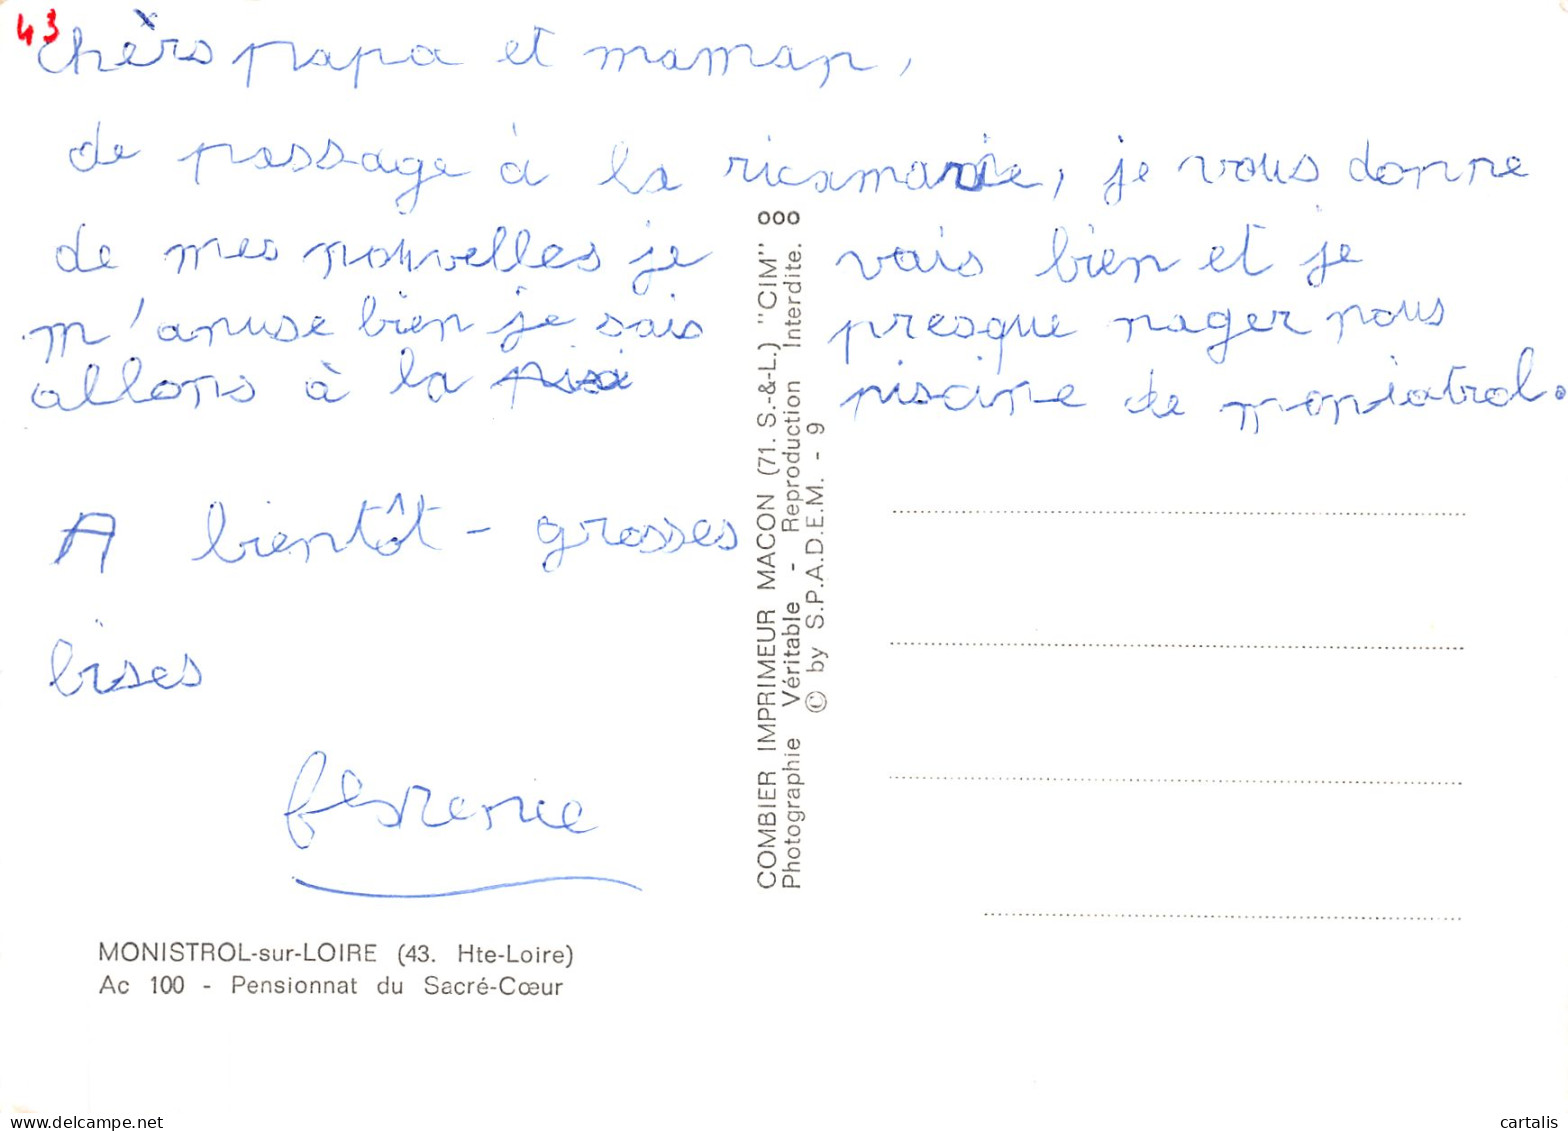 43
Chèrs papa et maman,
de passage à la ricamarie, je vous donne
de mes nouvelles je vais bien et je
m'amuse bien je sais presque nager nous
allons à la pisi piscine de monistrol.
A bientôt - grosses
bises
florence
MONISTROL-sur-LOIRE (43. Hte-Loire)
Ac 100 - Pensionnat du Sacré-Cœur
COMBIER IMPRIMEUR MACON (71. S.-&-L.) "CIM" 000
Photographie Véritable - Reproduction Interdite.
© by S.P.A.D.E.M. - 9
delcampe.net
cartalis